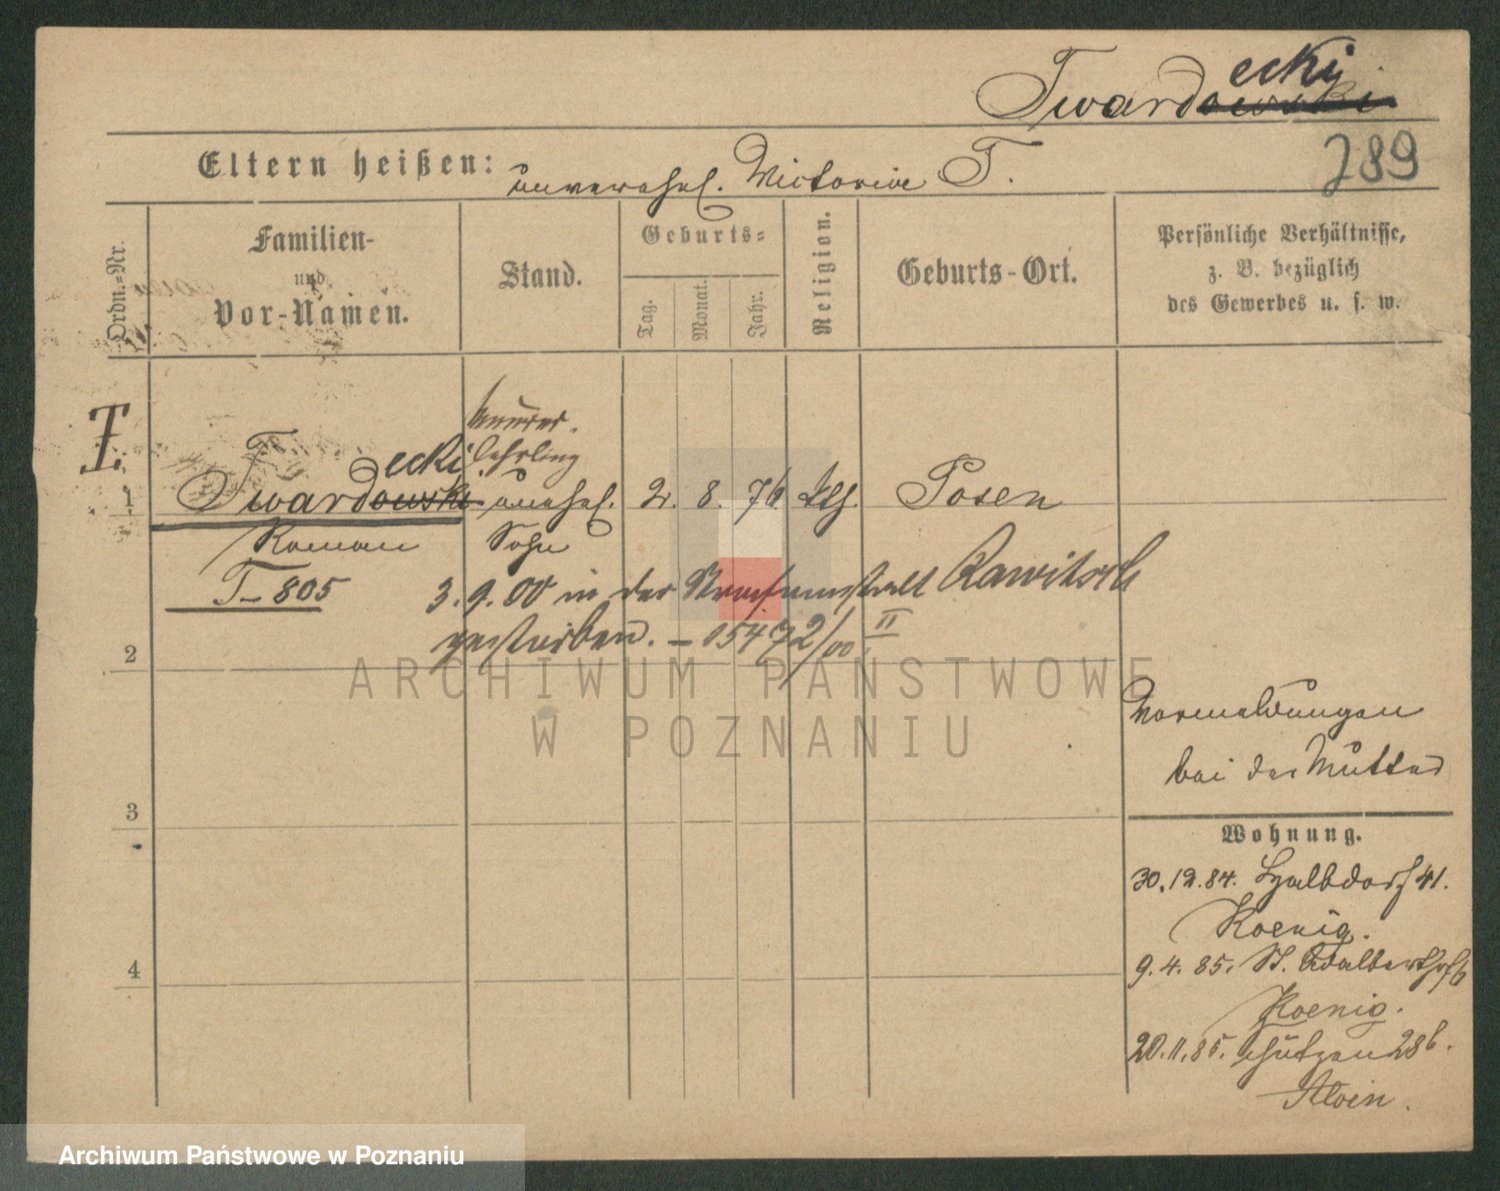 Twardowski ecki
789
Eltern heißen: unverehel. Victorine T.
Ordn.-Nr.
Familien-
und
Vor-Namen.
Stand.
Geburts-
Tag.
Monat.
Jahr.
Religion.
Geburts-Ort.
Persönliche Verhältnisse,
z. B. bezüglich
des Gewerbes u. s. w.
T.
Maurer-
lehrling
ecki
1 Twardowski unehel. 2. 8. 76 Posen
Roman Sohn
T-805
3.9.00 in der Strafanstalt Rawitsch
gestorben. - 15472/00 II
2
ARCHIWUM PAŃSTWOWE
W POZNANIU
Vormeldungen
bei der Mutter
3
Wohnung.
30.12.84. Halbdorf 41.
Koenig.
4
9.4.85. St. Adalbertstr 6
Koenig.
20.11.85. Schützen 28b.
Archiwum Państwowe w Poznaniu